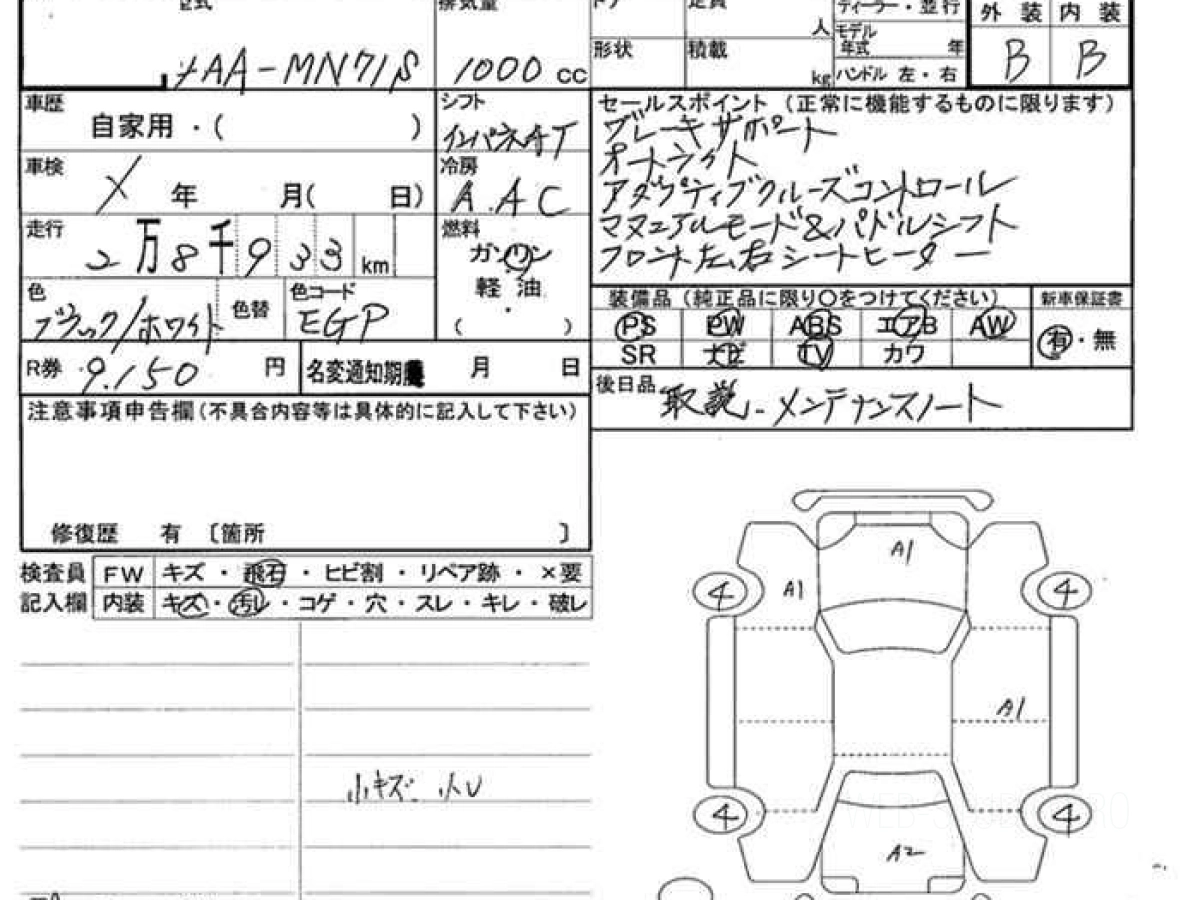 型式 排気量 ドア 定員 ディーラー・並行 外装 内装
人 モデル年式 年
4AA-MN71S 1000 cc 形状 積載 kg ハンドル 左・右 B B
車歴 自家用・( )
シフト インパネAT
セールスポイント (正常に機能するものに限ります)
ブレーキサポート
オートライト
アダプティブクルーズコントロール
マニュアルモード&パドルシフト
フロント左、右シートヒーター
車検 X 年 月( 日)
冷房 A.AC
走行 2万8千933 km
燃料 ガソリン
軽油
・
( )
色 ブラック/ホワイト 色替 色コード EGP
装備品 (純正品に限り〇をつけてください) 新車保証書
PS PW ABS エアB AW 有・無
SR ナビ TV カワ
R券 9.150 円 名変通知期限 月 日
後日品 取説、メンテナンスノート
注意事項申告欄(不具合内容等は具体的に記入して下さい)
修復歴 有 〔箇所 〕
検査員 FW キズ・飛石・ヒビ割・リペア跡・×要
記入欄 内装 キズ・汚レ・コゲ・穴・スレ・キレ・破レ
小キズ.
A1
A1
4 4
A1
4 4
A2